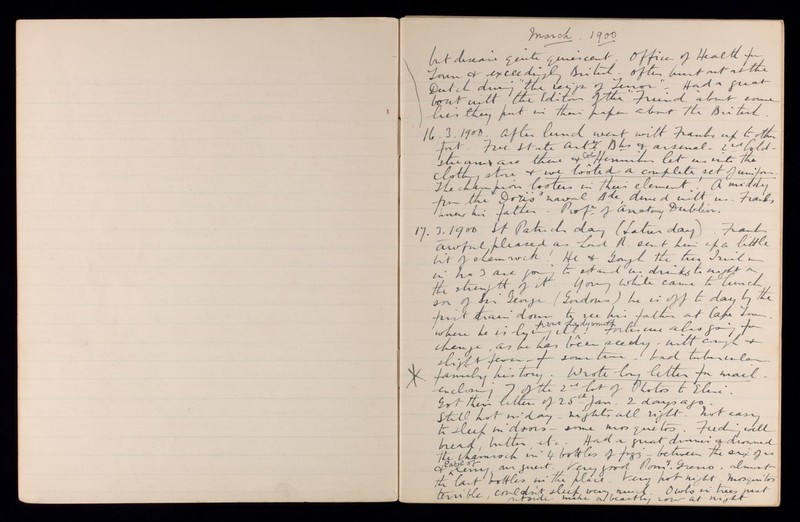 March. 1900
but disease quite quiescent. Officer of Health for
Town & exceedingly British. often burst out at the
Dutch during "the reign of Terror". Had a great
bout with the Editor of the "Friend" about some
lies they put in their paper about the British.
16.3.1900. After lunch went with Franks up to other
fort. Free State Arty Bks & arsenal. 2nd Cold-
streams are there & let us into the
clothg store & we looted a complete set of uniform.
The champion looters in their element! A middy
from the "Doris" naval Bde, dined with us. Franks
knew his father. Profr of Anatomy Dublin.
17.3.1900 St Patricks day (Saturday). Franks
awful pleased as Lord R. sent him up a little
bit of shamrock! He & Gough the two Irishmen
in No 3 are going to stand us drinks tonight on
the strength of it. Young White came to lunch,
son of Sir George (Gordons) he is off to day by the
first train down to see his father at Cape Town.
where he is lying ill! from Ladysmith Fortescue also going for
change, as he has been seedy with cough &
slight fever for some time - bad tubercular
family history. Wrote long letter for mail -
enclosing 7 of the 2nd lot of Photos to Elsie.
Got their letter of 25th Jan. 2 days ago.
Still hot midday - nights all right. Not easy
to sleep indoors - some mosquetos. Feeding well
bread, butter etc. Had a great dinner & drowned
the shamrock in 4 bottles of fizz - between the six of us
& our guest. Very good Pomy Greno. almost
the last bottles in the place. Very hot night. Mosquitos
terrible, couldn't sleep very much. Owls in trees just
outside make a beastly row at night